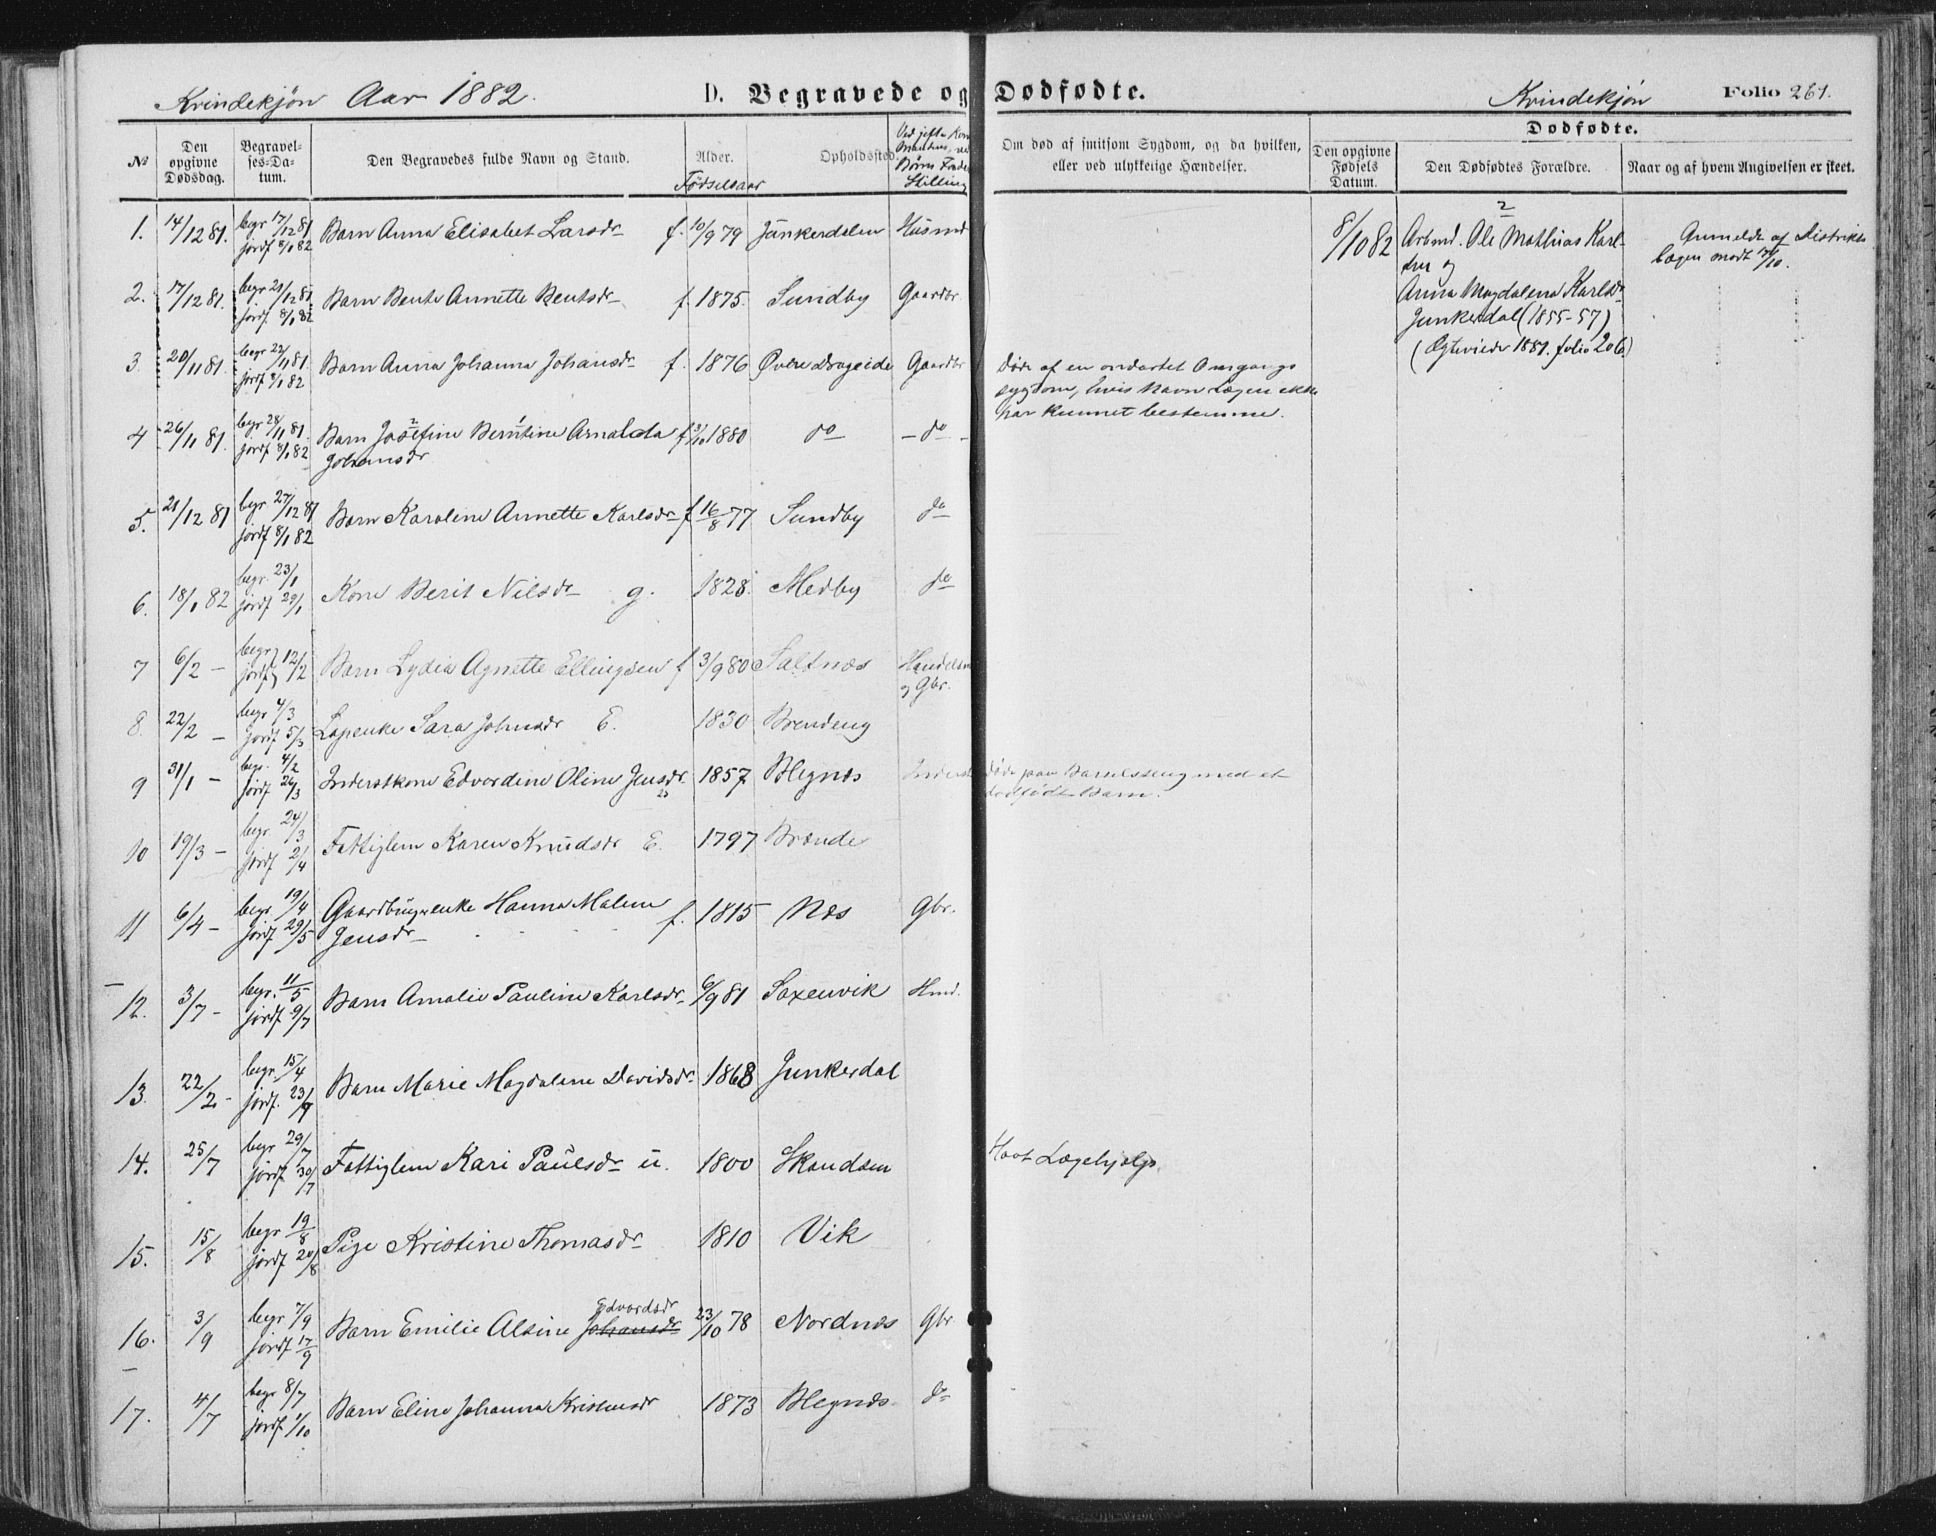 Kvindekjøn Aar 1882. D. Begravede og Dødfødte. Kvindekjøn Folio 261.
№ Den opgivne Dødsdag. Begravel-ses-Da-tum. Den Begravedes fulde Navn og Stand. Alder. Fødselsaar Opholdssted. Børn Stilling
Om død af smitsom Sygdom, og da hvilken, eller ved ulykkelige Hændelser.
Dødfødte.
Den opgivne Fødsels Datum. Den Dødfødtes Forældre. Naar og af hvem Angivelsen er skeet.
1. 14/12 81. begr 17/12 81 jordf 8/1 82 Barn Anna Elisabet Larsdr f. 10/9 79 Junkerdalen Husmd
2. 17/12 81. begr 21/12 81 jordf. 8/1 82 Barn Bente Annette Bentsdr f. 1875. Sundby Gaardbr.
3. 20/11 81. begr 22/11 81. jordf 8/1 82 Barn Anna Johanna Johansdr f. 1876 Øvre Drageide Gaardbr
4 26/11 81. begr 28/11 81. jordf 8/1 82 Barn Josefine Berntine Arnalda f 3/10 1880 do - do -
Johansdr
5. 21/12 81 begr 27/12 81 jordf 8/1 82 Barn Karoline Annette Karlsdr f 16/8 77 Sundby do
6. 18/1 82 begr. 23/1 jordf 29/1 Kone Berit Nilsdr g. 1828. Medby do
7 6/2 - begr jordf 12/2 Barn Lydia Agnette Ellingsen f 3/9 80 Saltnæs Handelsm
og Gbr.
8. 22/2 - begr 4/3 jordf 5/3 Lapenke Sara Johnsdr E. 1830 Brendeng
9 31/1 - begr. 4/2 jordf 26/3 Inderstkone Edvardine Oline Jensdr. 1857 Blegnæs Inderst
10 19/3 - begr 24/3 jordf 2/4 Fattiglem Karen Knudsdr E. 1797 Brænde
11 6/4 - begr. 19/4 jordf 29/5 Gaardbrugerenke Hanna Malene f. 1815 Næs Gbr.
Jensdr
12. 3/7 - begr. 11/5 jordf 9/7 Barn Amalie Pauline Karlsdr 6/9 81 Saxenvik Hmd.
13. 22/2 - begr. 15/4 jordf. 23/7 Barn Marie Magdalene Davidsdr. 1868 Junkerdal
14. 25/7 begr 29/7 jordf 30/7 Fattiglem Kari Paulsdr u. 1800 Skandsen
15. 15/8 begr 19/8 jordf 20/8 Pige Kristine Thomasdr 1810 Vik
16. 3/9 begr 7/9 jordf 17/9 Barn Emilie Alsine Johansdr Edvardsdr 23/10 78 Nordnæs Gbr
17. 4/7 begr 8/7 jordf 1/10 Barn Eline Johanna Kristensdr 1873 Blegnæs do
Døde af en ondartet Omgangs
sygdom, hvis Navn Lægen ikke
har kunnet bestemme.
Døde paa Barselseng med et
dødfødt Barn.
Havt Lægehjælp.
8/10 82 Arbmd. Ole Mathias Karl-
sen og
Anna Magdalena Karlsdr
Junkerdal (1855-57)
(Ægteviede 1881. folio 206)
Anmeldt af Distrikts
lægen modt 17/10.